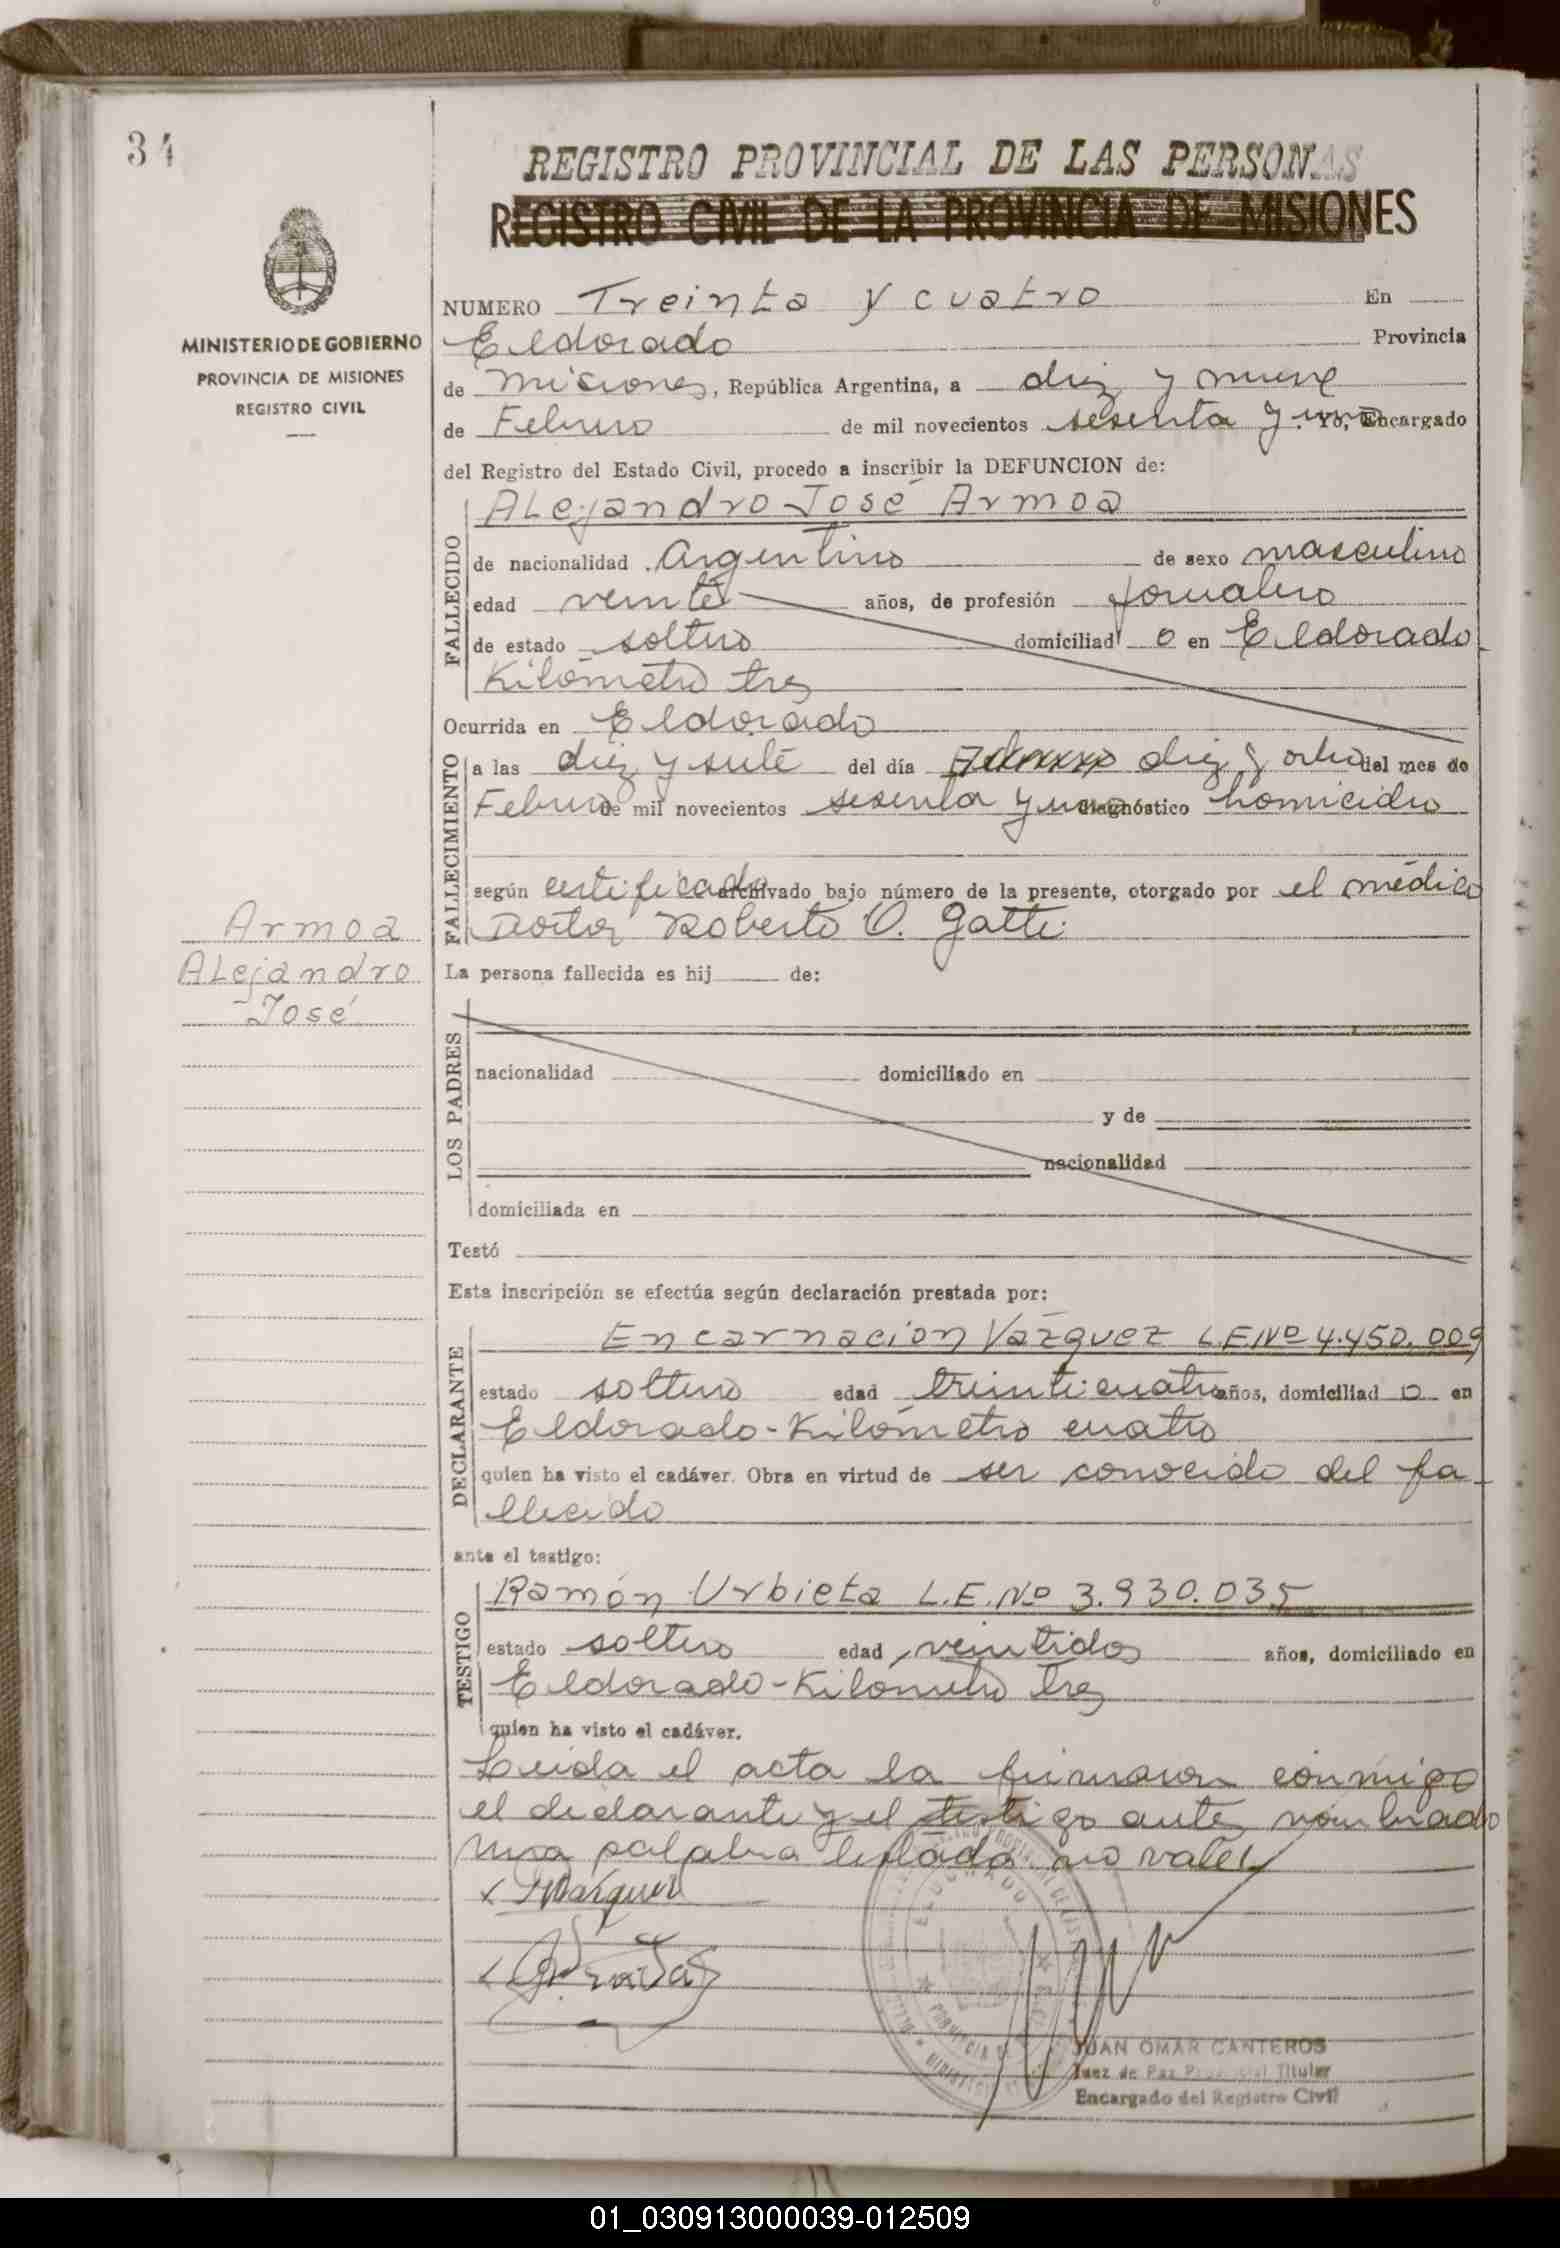 34
REGISTRO PROVINCIAL DE LAS PERSONAS
REGISTRO CIVIL DE LA PROVINCIA DE MISIONES
MINISTERIO DE GOBIERNO
PROVINCIA DE MISIONES
REGISTRO CIVIL
NUMERO Treinta y cuatro En
Eldorado Provincia
de Misiones, República Argentina, a diez y nueve
de Febrero de mil novecientos sesenta y uno. Yo, Encargado
del Registro del Estado Civil, procedo a inscribir la DEFUNCION de:
FALLECIDO
Alejandro José Armoa
de nacionalidad Argentino de sexo masculino
edad veinte años, de profesión jornalero
de estado soltero domiciliad o en Eldorado
Kilómetro tres
Ocurrida en Eldorado
FALLECIMIENTO
a las diez y siete del día diez y ocho del mes de
Febrero de mil novecientos sesenta y uno diagnóstico homicidio
según certificado archivado bajo número de la presente, otorgado por el médico
Doctor Roberto O. Gatti
Armoa
Alejandro
José
La persona fallecida es hij de:
LOS PADRES
nacionalidad domiciliado en
y de
nacionalidad
domiciliada en
Testó
Esta inscripción se efectúa según declaración prestada por:
DECLARANTE
Encarnación Vázquez L.E.Nº 4.450.009
estado soltero edad treinticuatro años, domiciliad o en
Eldorado-Kilómetro cuatro
quien ha visto el cadáver. Obra en virtud de ser conocido del fa-
llecido
ante el testigo:
TESTIGO
Ramón Urbieta L.E.Nº 3.930.035
estado soltero edad veintidos años, domiciliado en
Eldorado-Kilómetro tres
quien ha visto el cadáver.
Leida el acta la firmaron conmigo
el declarante y el testigo antes nombrado
una palabra testada no vale.
ELDORADO
JUAN OMAR CANTEROS
Juez de Paz Provincial Titular
Encargado del Registro Civil
01_030913000039-012509